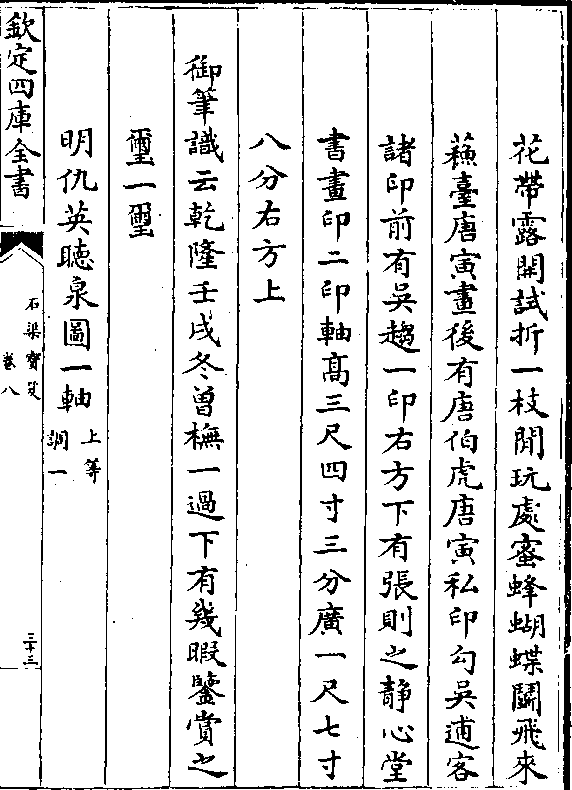 花帶露開試折一枝閒玩處蜜蜂蝴蝶鬭飛來
蘓臺唐寅畫後有唐伯虎唐寅私印勾吳逋客
諸印前有吳趨一印右方下有張則之靜心堂
書畫印二印軸髙三尺四寸三分廣一尺七寸
八分右方上
御筆識云乾隆壬戌冬曽橅一過下有幾暇鑒賞之
璽一璽
明仇英聴泉圖一軸 上等
調一
欽定四庫全書
石渠寳笈
卷八
三十三